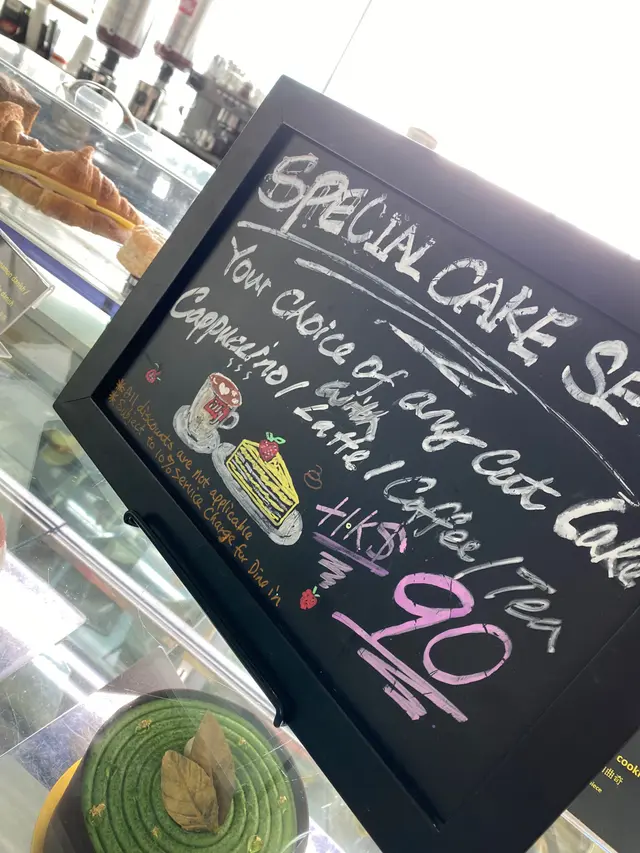 SPECIAL CAKE SE
Your choice of any cut Cake
with
Cappuccino / Latte / Coffee / Tea
HK$
90
*all discounts are not applicable
*subject to 10% service charge for Dine in
cooki
曲奇
iece